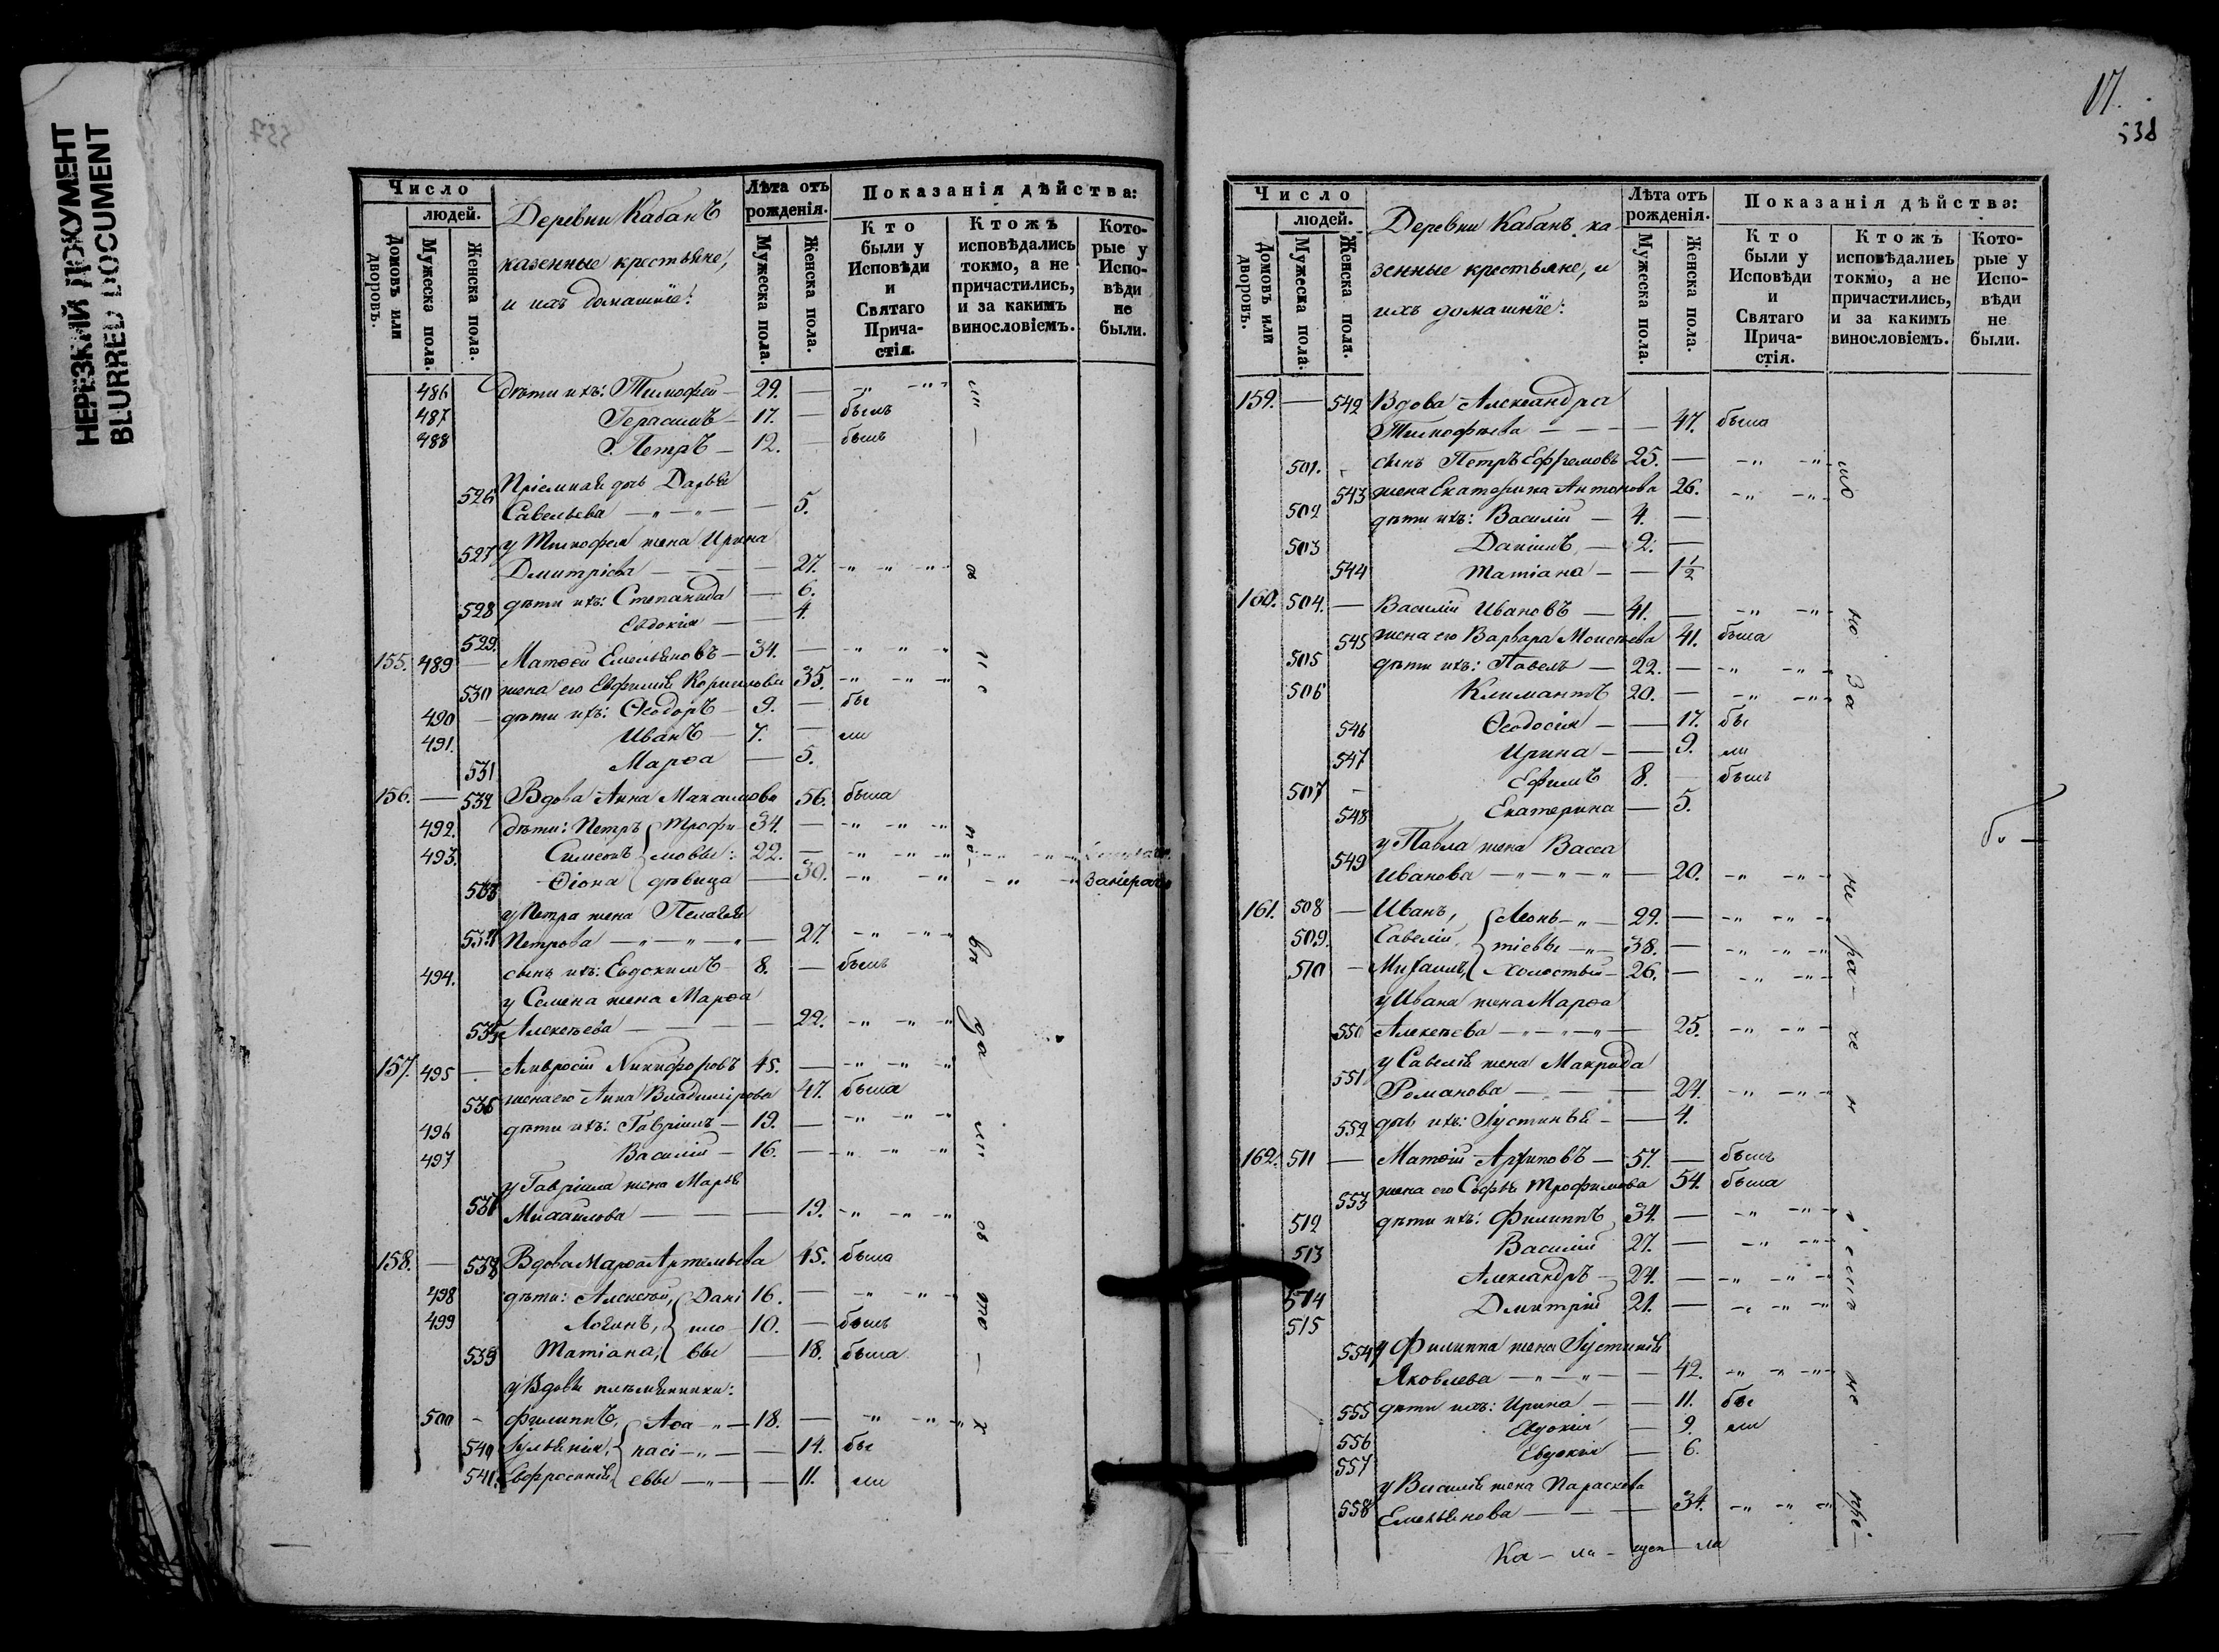 НЕРЕЗКИЙ ДОКУМЕНТ
BLURRED DOCUMENT
537
Число
людей.
Домовъ или дворовъ.
Мужеска пола.
Женска пола.
Деревни Кабанъ
казенные крестьяне,
и ихъ домашніе:
Лѣта отъ рожденія.
Мужеска пола.
Женска пола.
Показанія дѣйства:
Кто были у Исповѣди и Святаго Причастія.
Ктожъ исповѣдались токмо, а не причастились, и за какимъ винословіемъ.
Которые у Исповѣди не были.
486 дѣти ихъ: Тимофей — 29. —
487 Герасимъ — 17. — былъ
488 Петръ — 12. — былъ
Пріемная дочь Дарья
526 Савельева — 5.
у Тимофея жена Ирина
527 Дмитріева — 27.
528 дѣти ихъ: Степанида — 6.
529. Евдокія — 4.
155. 489 — Матѳей Емельяновъ — 34. —
530 жена его Евфимія Корнилова 35.
490 — дѣти ихъ: Ѳеодоръ — 9. — бы
491. Иванъ — 7. — ли
531 Марѳа — 5.
156. — 532 Вдова Анна Максимова 56. была
492. дѣти: Петръ Трофи- 34. —
493. Симеонъ мовы: 22. —
533 Ѳіона дѣвица — 30.
у Петра жена Пелагея
534 Петрова — 27.
494. сынъ ихъ: Евдокимъ 8. — былъ
у Семена жена Марѳа
535 Алексѣева — 22.
157. 495 — Амвросій Никифоровъ 45. —
536 жена его Анна Владимірова 47. была
496 дѣти ихъ: Гавріилъ — 19. —
497 Василій — 16. —
у Гавріила жена Марья
537 Михайлова — 19.
158. — 538 Вдова Марѳа Артемьева 45. была
498 дѣти: Алексѣй, Дані 16. —
499 Логинъ, ило 10. — былъ
539 Татіана, вы — 18. была
у Вдовы племянники:
500 — Филиппъ, Аѳа — 18. —
540 Іуліанія, насі — 14. бы
541. Евфросинія, евы — 11. ли
17.
538
Число
людей.
Домовъ или дворовъ.
Мужеска пола.
Женска пола.
Деревни Кабанъ ка-
зенные крестьяне, и
ихъ домашніе:
Лѣта отъ рожденія.
Мужеска пола.
Женска пола.
Показанія дѣйства:
Кто были у Исповѣди и Святаго Причастія.
Ктожъ исповѣдались токмо, а не причастились, и за какимъ винословіемъ.
Которые у Исповѣди не были.
159. — 542 Вдова Александра
Тимофѣева — 47. была
501. сынъ Петръ Ефремовъ 25. —
543 жена Екатерина Антонова 26.
502 дѣти ихъ: Василій — 4. —
503 Даніилъ — 2. —
544 Татіана — 1½
160. 504. — Василій Ивановъ — 41. —
545 жена его Варвара Моисеева 41. была
505 дѣти ихъ: Павелъ — 22. —
506 Климантъ 20. —
546 Ѳеодосія — 17. бы
547 Ирина — 9. ли
507 — Ефимъ 8. — былъ
548 Екатерина — 5.
у Павла жена Васса
549 Иванова — 20.
161. 508 — Иванъ, Леон- 29. —
509. Савелій, тіевы 38. —
510 — Михаилъ, холостый 26. —
у Ивана жена Марѳа
550 Алексѣева — 25.
у Савелія жена Макрида
551 Романова — 24.
552 дочь ихъ: Іустинья — 4.
162. 511 — Матѳій Архиповъ — 57. — былъ
553 жена его Софья Трофимова 54. была
512 дѣти ихъ: Филиппъ 34. —
513 Василій 27. —
514 Александръ 24. —
515 Дмитрій 21. —
554 у Филиппа жена Іустинія
Яковлева — 42.
555 дѣти ихъ: Ирина — 11. бы
556 Евдокія — 9. ли
557 Евдокія — 6.
у Василія жена Параскева
558 Емельянова — 34.